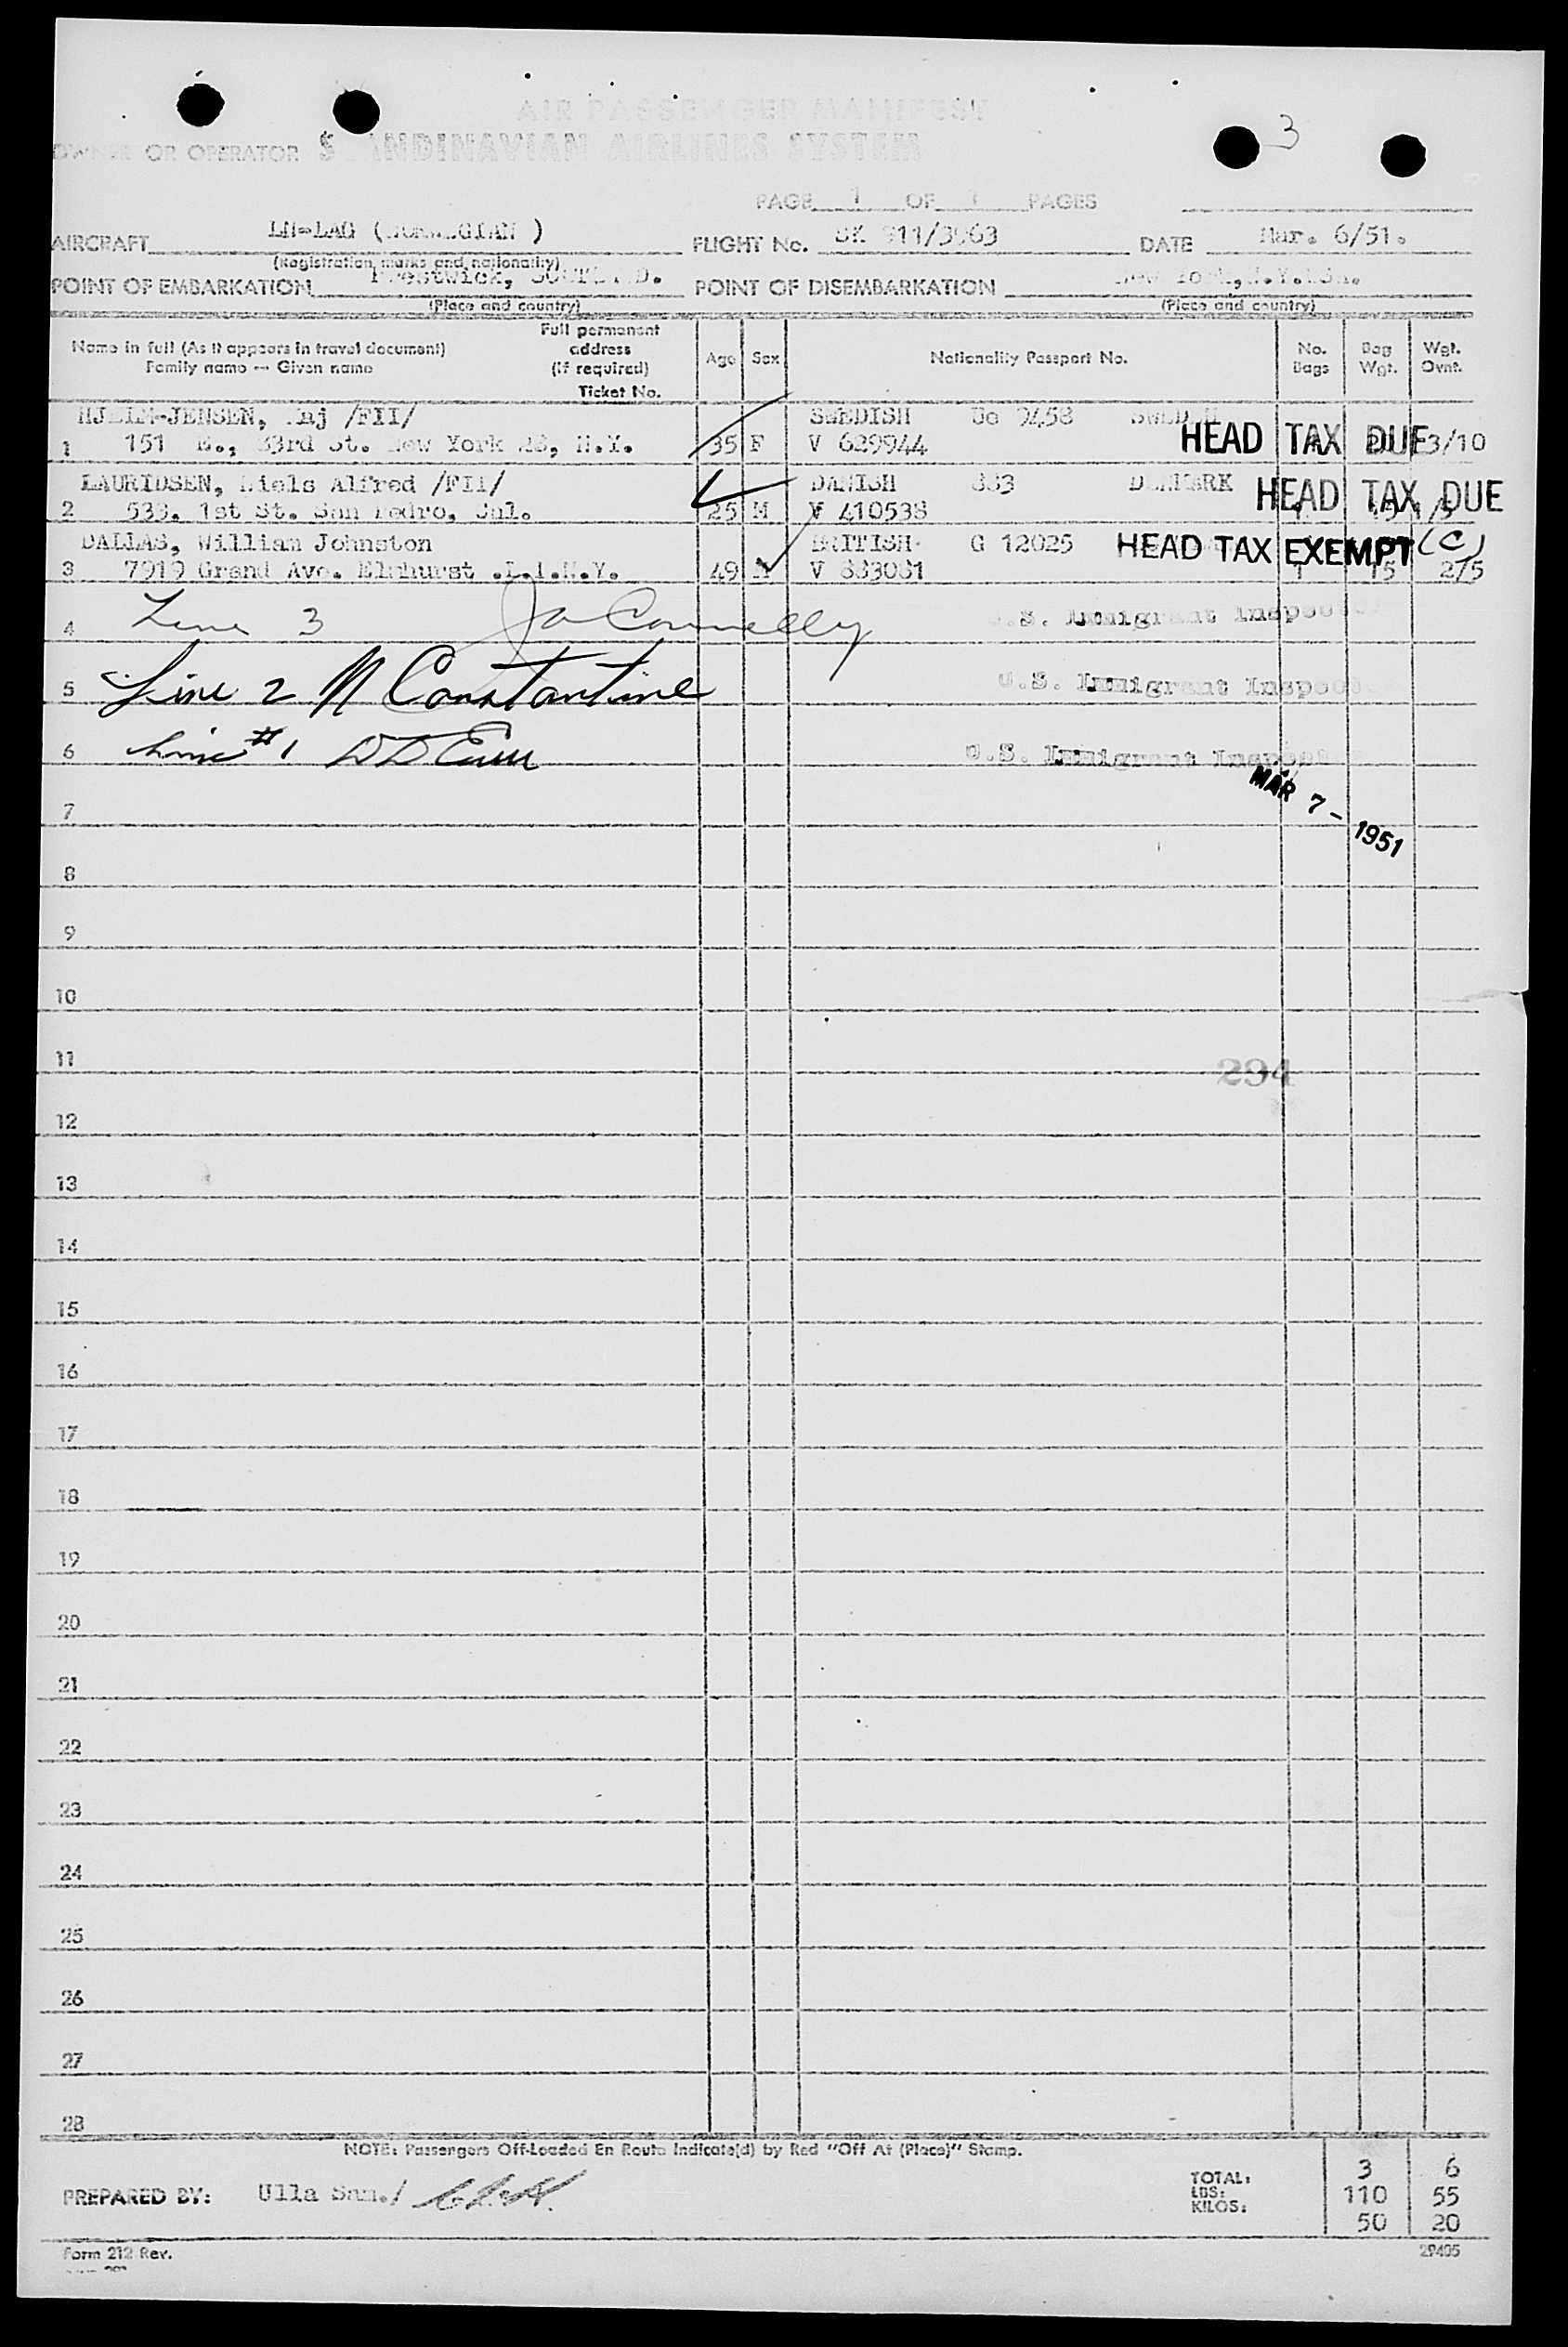 3
AIR PASSENGER MANIFEST
OWNER OR OPERATOR SCANDINAVIAN AIRLINES SYSTEM
PAGE 1 OF 1 PAGES
AIRCRAFT LN-LAG (NORWEGIAN ) FLIGHT No. SK 911/3063 DATE Mar. 6/51.
(Registration marks and nationality)
POINT OF EMBARKATION Prestwick, SCOTLAND. POINT OF DISEMBARKATION New York, N.Y.USA.
(Place and country) (Place and country)
Name in full (As it appears in travel document) Family name — Given name Full permanent address (if required) Ticket No. Age Sex Nationality Passport No. No. Bags Bag Wgt. Wgt. Ovnt.
HJELM-JENSEN, /FII/ SWEDISH Uo 9458 SWEDEN
1 151 E., 33rd St. New York N.Y. 35 F V 629944 HEAD TAX DUE 3/10
LAURIDSEN, Niels Alfred /FII/ DANISH 883 DENMARK
2 533. 1st St. San Pedro, Cal. 25 M V 410538 HEAD TAX DUE 1 15 1/5
DALLAS, William Johnston BRITISH G 12025 HEAD TAX EXEMPT (C)
3 7919 Grand Ave. Elmhurst .L.I.N.Y. 49 M V 883081 1 15 2/5
4 Line 3 Connelly U.S. Immigrant Inspector
5 Line 2 N Constantine U.S. Immigrant Inspector
6 Line #1 U.S. Immigrant Inspector
MAR 7 - 1951
7
8
9
10
11
294
12
13
14
15
16
17
18
19
20
21
22
23
24
25
26
27
28
NOTE: Passengers Off-Loaded En Route Indicate(d) by Red "Off At (Place)" Stamp.
TOTAL: 3 6
PREPARED BY: Ulla Sam./ LBS: 110 55
KILOS: 50 20
Form 212 Rev. 29405